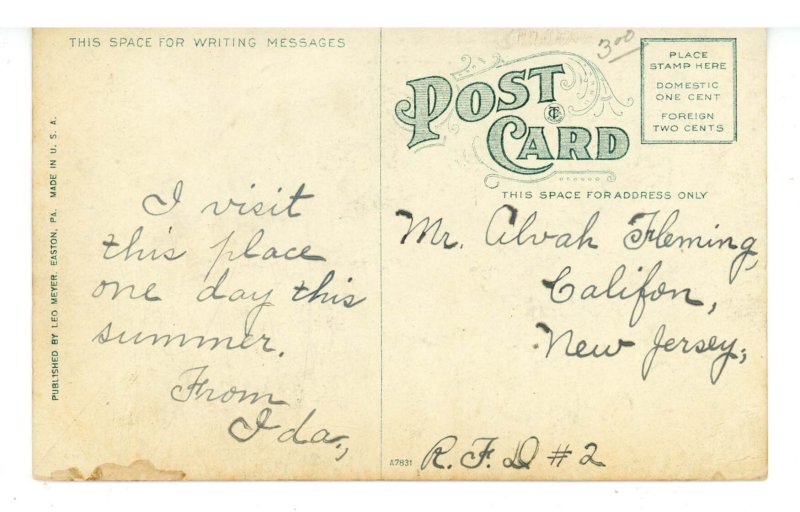 THIS SPACE FOR WRITING MESSAGES
I visit
this place
one day this
summer.
From
Ida.,
PUBLISHED BY LEO MEYER, EASTON, PA. MADE IN U. S. A.
300
POST
CARD
PLACE
STAMP HERE
DOMESTIC
ONE CENT
FOREIGN
TWO CENTS
THIS SPACE FOR ADDRESS ONLY
Mr. Alvah Fleming,
Califon,
New Jersey,
A7831
R. F. D #2